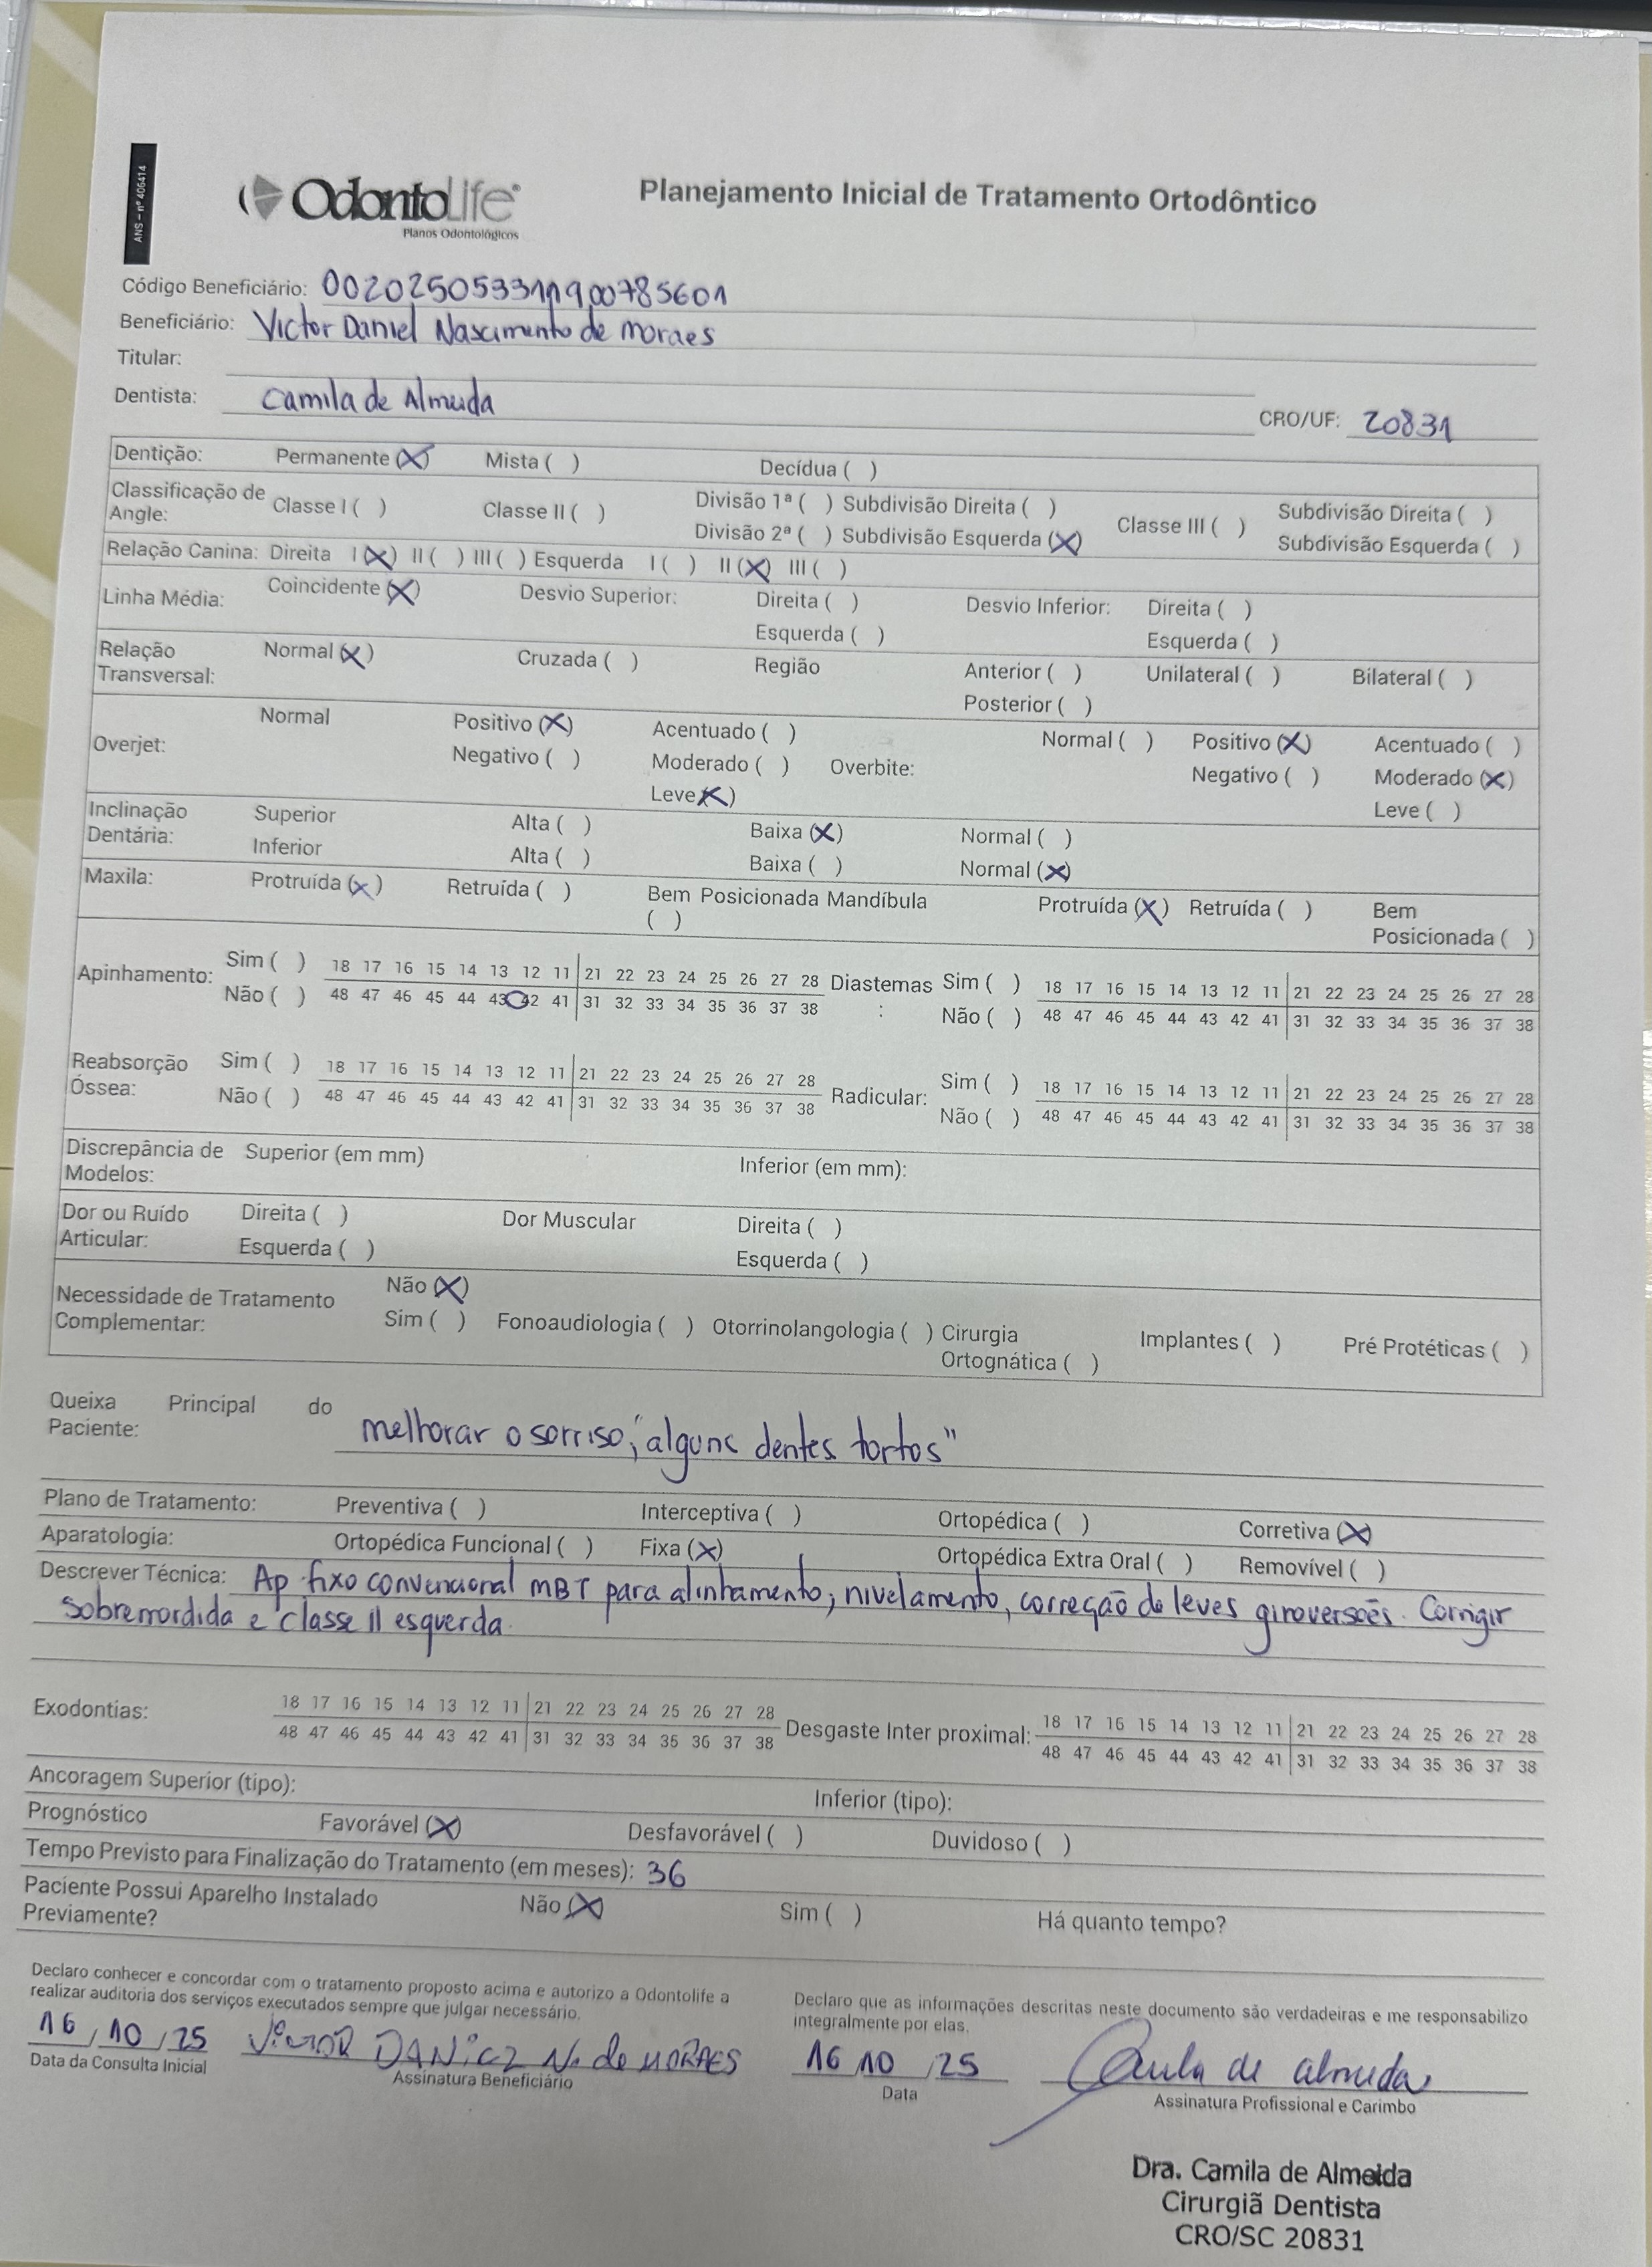 ANS - nº 406414
OdontoLife®
Planos Odontológicos
Planejamento Inicial de Tratamento Ortodôntico
Código Beneficiário: 002025053311900785601
Beneficiário: Victor Daniel Nascimento de Moraes
Titular:
Dentista: Camila de Almeida CRO/UF: 20831
Dentição: Permanente (X) Mista ( ) Decídua ( )
Classificação de Angle: Classe I ( ) Classe II ( ) Divisão 1ª ( ) Subdivisão Direita ( ) Classe III ( ) Subdivisão Direita ( )
Divisão 2ª ( ) Subdivisão Esquerda (X) Subdivisão Esquerda ( )
Relação Canina: Direita I (X) II ( ) III ( ) Esquerda I ( ) II (X) III ( )
Linha Média: Coincidente (X) Desvio Superior: Direita ( ) Desvio Inferior: Direita ( )
Esquerda ( ) Esquerda ( )
Relação Transversal: Normal (X) Cruzada ( ) Região Anterior ( ) Unilateral ( ) Bilateral ( )
Posterior ( )
Overjet: Normal Positivo (X) Acentuado ( ) Overbite: Normal ( ) Positivo (X) Acentuado ( )
Negativo ( ) Moderado ( ) Negativo ( ) Moderado (X)
Leve (X) Leve ( )
Inclinação Dentária: Superior Alta ( ) Baixa (X) Normal ( )
Inferior Alta ( ) Baixa ( ) Normal (X)
Maxila: Protruída (X) Retruída ( ) Bem Posicionada ( ) Mandíbula Protruída (X) Retruída ( ) Bem Posicionada ( )
Apinhamento: Sim ( ) 18 17 16 15 14 13 12 11 21 22 23 24 25 26 27 28 Diastemas: Sim ( ) 18 17 16 15 14 13 12 11 21 22 23 24 25 26 27 28
Não ( ) 48 47 46 45 44 43 42 41 31 32 33 34 35 36 37 38 Não ( ) 48 47 46 45 44 43 42 41 31 32 33 34 35 36 37 38
Reabsorção Óssea: Sim ( ) 18 17 16 15 14 13 12 11 21 22 23 24 25 26 27 28 Radicular: Sim ( ) 18 17 16 15 14 13 12 11 21 22 23 24 25 26 27 28
Não ( ) 48 47 46 45 44 43 42 41 31 32 33 34 35 36 37 38 Não ( ) 48 47 46 45 44 43 42 41 31 32 33 34 35 36 37 38
Discrepância de Modelos: Superior (em mm) Inferior (em mm):
Dor ou Ruído Articular: Direita ( ) Dor Muscular Direita ( )
Esquerda ( ) Esquerda ( )
Necessidade de Tratamento Complementar: Não (X)
Sim ( ) Fonoaudiologia ( ) Otorrinolangologia ( ) Cirurgia Ortognática ( ) Implantes ( ) Pré Protéticas ( )
Queixa Principal do Paciente: melhorar o sorriso, "alguns dentes tortos"
Plano de Tratamento: Preventiva ( ) Interceptiva ( ) Ortopédica ( ) Corretiva (X)
Aparatologia: Ortopédica Funcional ( ) Fixa (X) Ortopédica Extra Oral ( ) Removível ( )
Descrever Técnica: Ap fixo convencional MBT para alinhamento, nivelamento, correção de leves giroversões. Corrigir
sobremordida e classe II esquerda.
Exodontias: 18 17 16 15 14 13 12 11 21 22 23 24 25 26 27 28 Desgaste Inter proximal: 18 17 16 15 14 13 12 11 21 22 23 24 25 26 27 28
48 47 46 45 44 43 42 41 31 32 33 34 35 36 37 38 48 47 46 45 44 43 42 41 31 32 33 34 35 36 37 38
Ancoragem Superior (tipo): Inferior (tipo):
Prognóstico Favorável (X) Desfavorável ( ) Duvidoso ( )
Tempo Previsto para Finalização do Tratamento (em meses): 36
Paciente Possui Aparelho Instalado Previamente? Não (X) Sim ( ) Há quanto tempo?
Declaro conhecer e concordar com o tratamento proposto acima e autorizo a Odontolife a
realizar auditoria dos serviços executados sempre que julgar necessário.
16/10/25 Victor Daniel N. de Moraes
Data da Consulta Inicial Assinatura Beneficiário
Declaro que as informações descritas neste documento são verdadeiras e me responsabilizo
integralmente por elas.
16/10/25 Camila de Almeida
Data Assinatura Profissional e Carimbo
Dra. Camila de Almeida
Cirurgiã Dentista
CRO/SC 20831